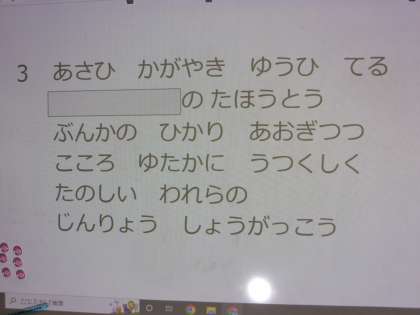 3 あさひ かがやき ゆうひ てる
の たほうとう
ぶんかの ひかり あおぎつつ
こころ ゆたかに うつくしく
たのしい われらの
じんりょう しょうがっこう